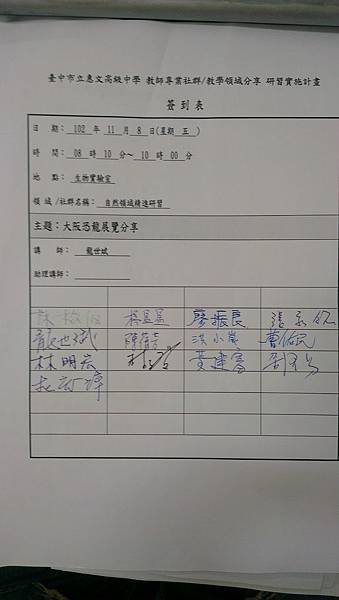 臺中市立惠文高級中學 教師專業社群/教學領域分享 研習實施計畫
簽到表
日 期: 102 年 11 月 8 日(星期 五 )
時 間: 08 時 10 分~ 10 時 00 分
地 點: 生物實驗室
領域/社群名稱: 自然領域精進研習
主題:大阪恐龍展覽分享
講 師: 龍世斌
助理講師:
廖振良
龍世斌 洪小
林明宏 黃建富